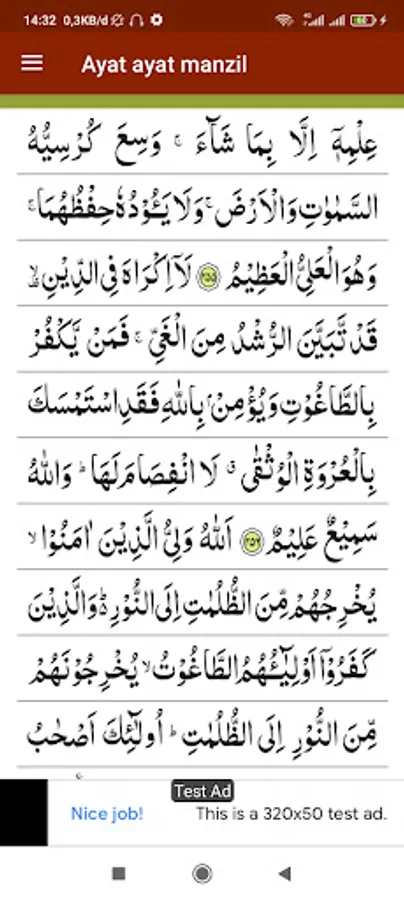 14:32 0,3KB/d
Ayat ayat manzil
عِلْمِهٖۤ اِلَّا بِمَا شَآءَ ۚ وَسِعَ كُرْسِیُّهُ
السَّمٰوٰتِ وَالْاَرْضَ ۚ وَلَا یَـُٔوْدُهٗ حِفْظُهُمَا ۚ
وَهُوَ الْعَلِیُّ الْعَظِیْمُ ﴿۲۵۵﴾ لَاۤ اِكْرَاهَ فِی الدِّیْنِ ۙ
قَدْ تَّبَیَّنَ الرُّشْدُ مِنَ الْغَیِّ ۚ فَمَنْ یَّكْفُرْ
بِالطَّاغُوْتِ وَیُؤْمِنْۢ بِاللّٰهِ فَقَدِ اسْتَمْسَكَ
بِالْعُرْوَةِ الْوُثْقٰی ۗ لَا انْفِصَامَ لَهَا ؕ وَاللّٰهُ
سَمِیْعٌ عَلِیْمٌ ﴿۲۵۶﴾ اَللّٰهُ وَلِیُّ الَّذِیْنَ اٰمَنُوْا ۙ
یُخْرِجُهُمْ مِّنَ الظُّلُمٰتِ اِلَی النُّوْرِ ؕ۬ وَالَّذِیْنَ
كَفَرُوْۤا اَوْلِیٰٓـُٔهُمُ الطَّاغُوْتُ ۙ یُخْرِجُوْنَهُمْ
مِّنَ النُّوْرِ اِلَی الظُّلُمٰتِ ؕ اُولٰٓئِكَ اَصْحٰبُ
Test Ad
Nice job! This is a 320x50 test ad.